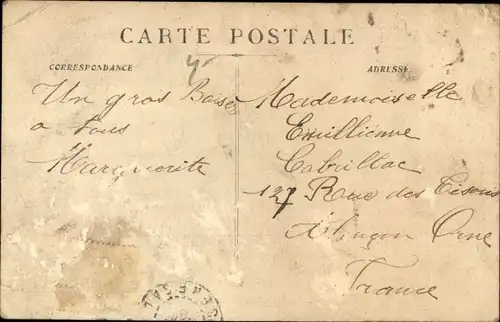 CARTE POSTALE
CORRESPONDANCE
ADRESSE
Un gros Baiser
a tous
Marguerite
Mademoiselle
Emillienne
Cabrillac
127 Rue des Tisons
Alençon Orne
France